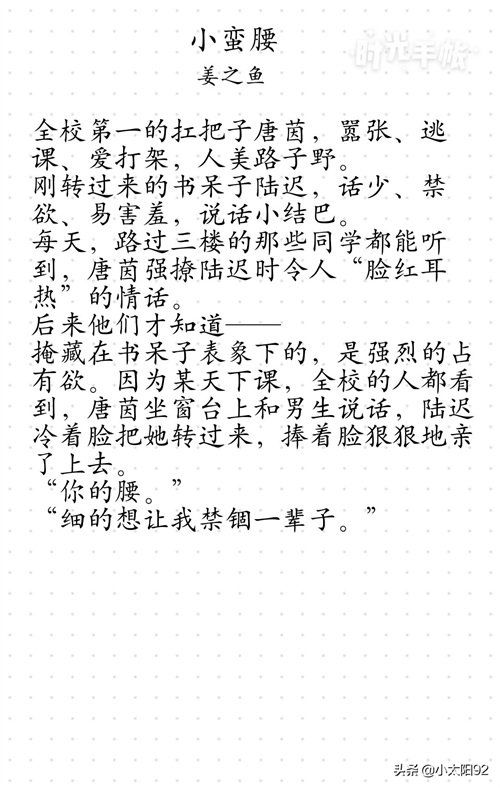 小蛮腰
时光手帐
姜之鱼
全校第一的扛把子唐茵，嚣张、逃
课、爱打架，人美路子野。
刚转过来的书呆子陆迟，话少、禁
欲、易害羞，说话小结巴。
每天，路过三楼的那些同学都能听
到，唐茵强撩陆迟时令人“脸红耳
热”的情话。
后来他们才知道——
掩藏在书呆子表象下的，是强烈的占
有欲。因为某天下课，全校的人都看
到，唐茵坐窗台上和男生说话，陆迟
冷着脸把她转过来，捧着脸狠狠地亲
了上去。
“你的腰。”
“细的想让我禁锢一辈子。”
头条 @小太阳92